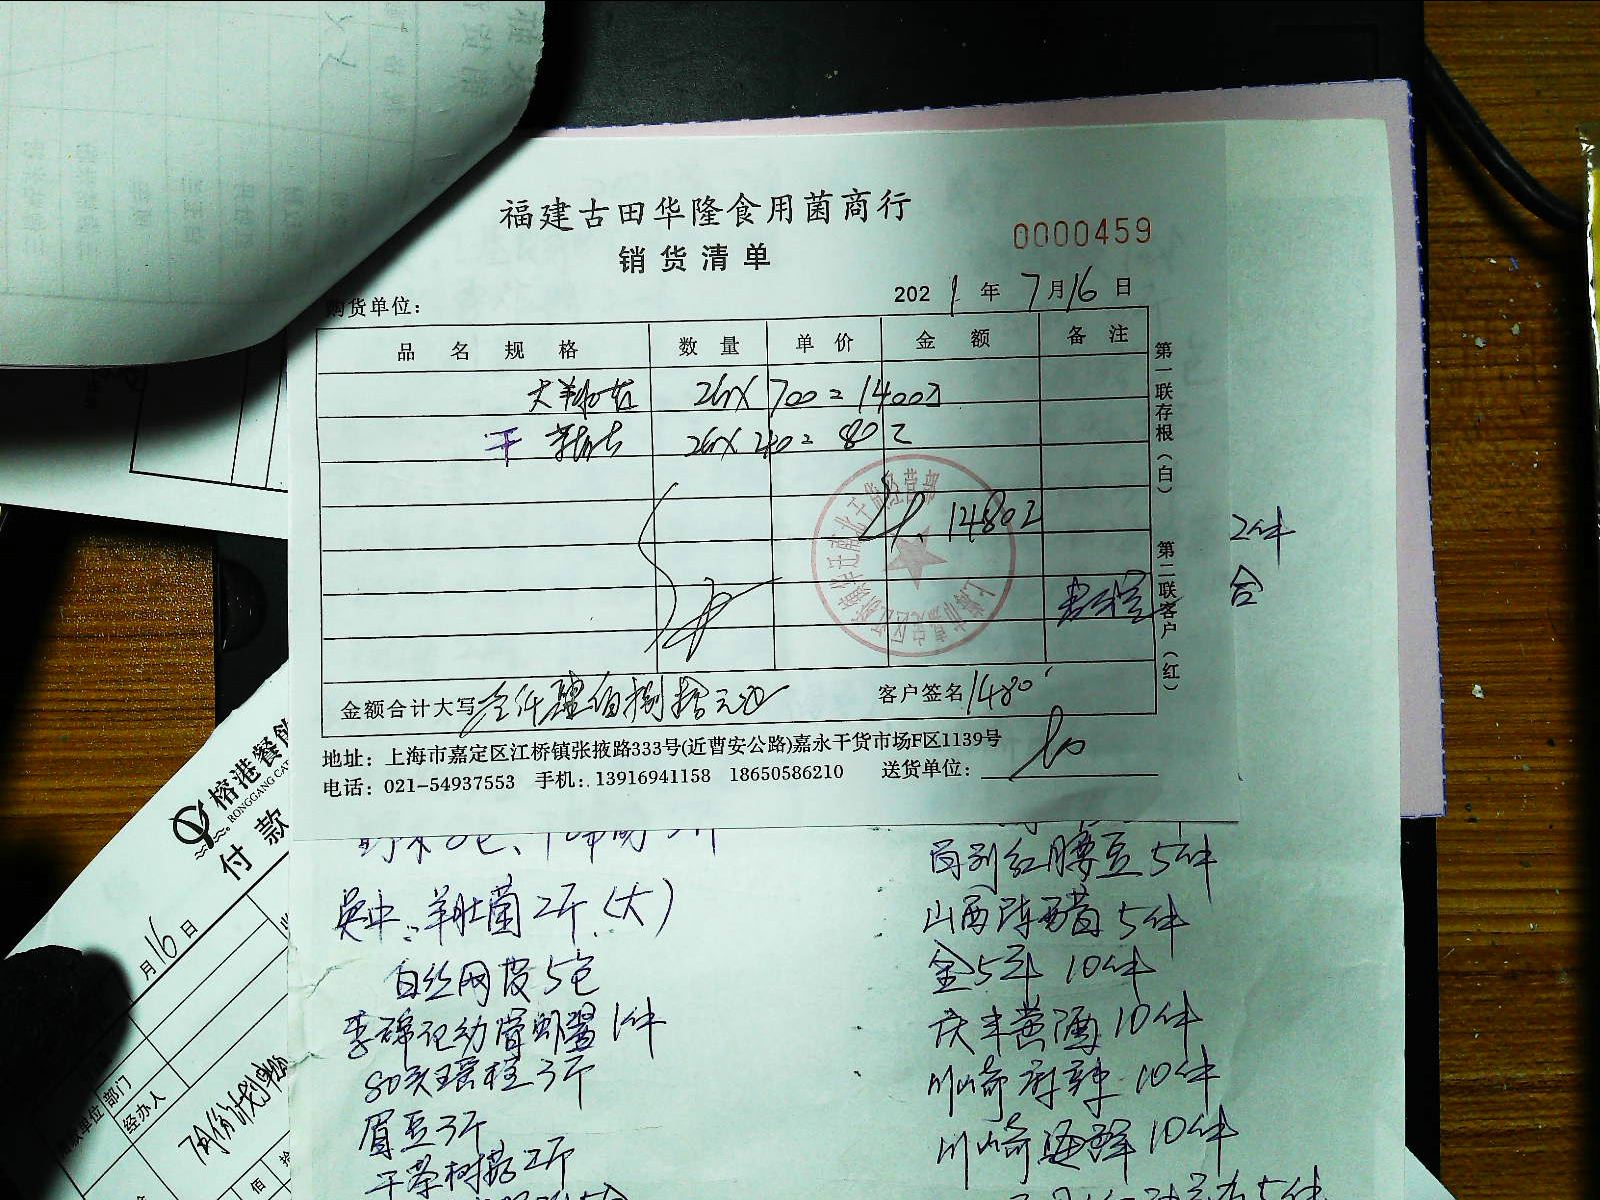 福建古田华隆食用菌商行
0000459
销货清单
购货单位：
2021年7月16日
品名规格 数量 单价 金额 备注
大羊肚菇 2斤X 700= 1400元
干 茶树菇 2斤X 40= 80元
1480元
金额合计大写 壹仟肆佰捌拾元正 客户签名 1480
地址：上海市嘉定区江桥镇张掖路333号(近曹安公路)嘉永干货市场F区1139号
电话：021-54937553 手机：13916941158 18650586210 送货单位：
第一联存根（白） 第二联客户（红）
2件
合
吴中：羊肚菌2斤（大）
白丝网皮5包
李锦记幼滑虾酱1件
80头瑶柱3斤
眉豆3斤
干茶树菇2斤
红腰豆5件
山西陈醋5件
金5年10件
庆丰黄酒10件
川崎麻辣10件
川崎海鲜10件
5件
榕港餐饮
RONGGANG CAT
付款
月16日
部门
经办人
7月份计划
佰
拾